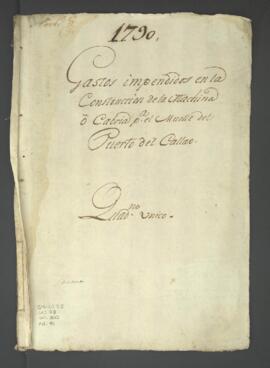 1790,
Gastos impendidos en la
Construccion de la Machina
ó Cabria pª. el Muelle del
Puerto del Callao.
Quadno. Unico.